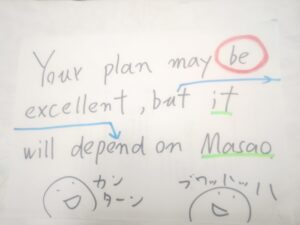 Your plan may be
excellent, but it
will depend on Masao
カン
ターン
ブワッハッハ